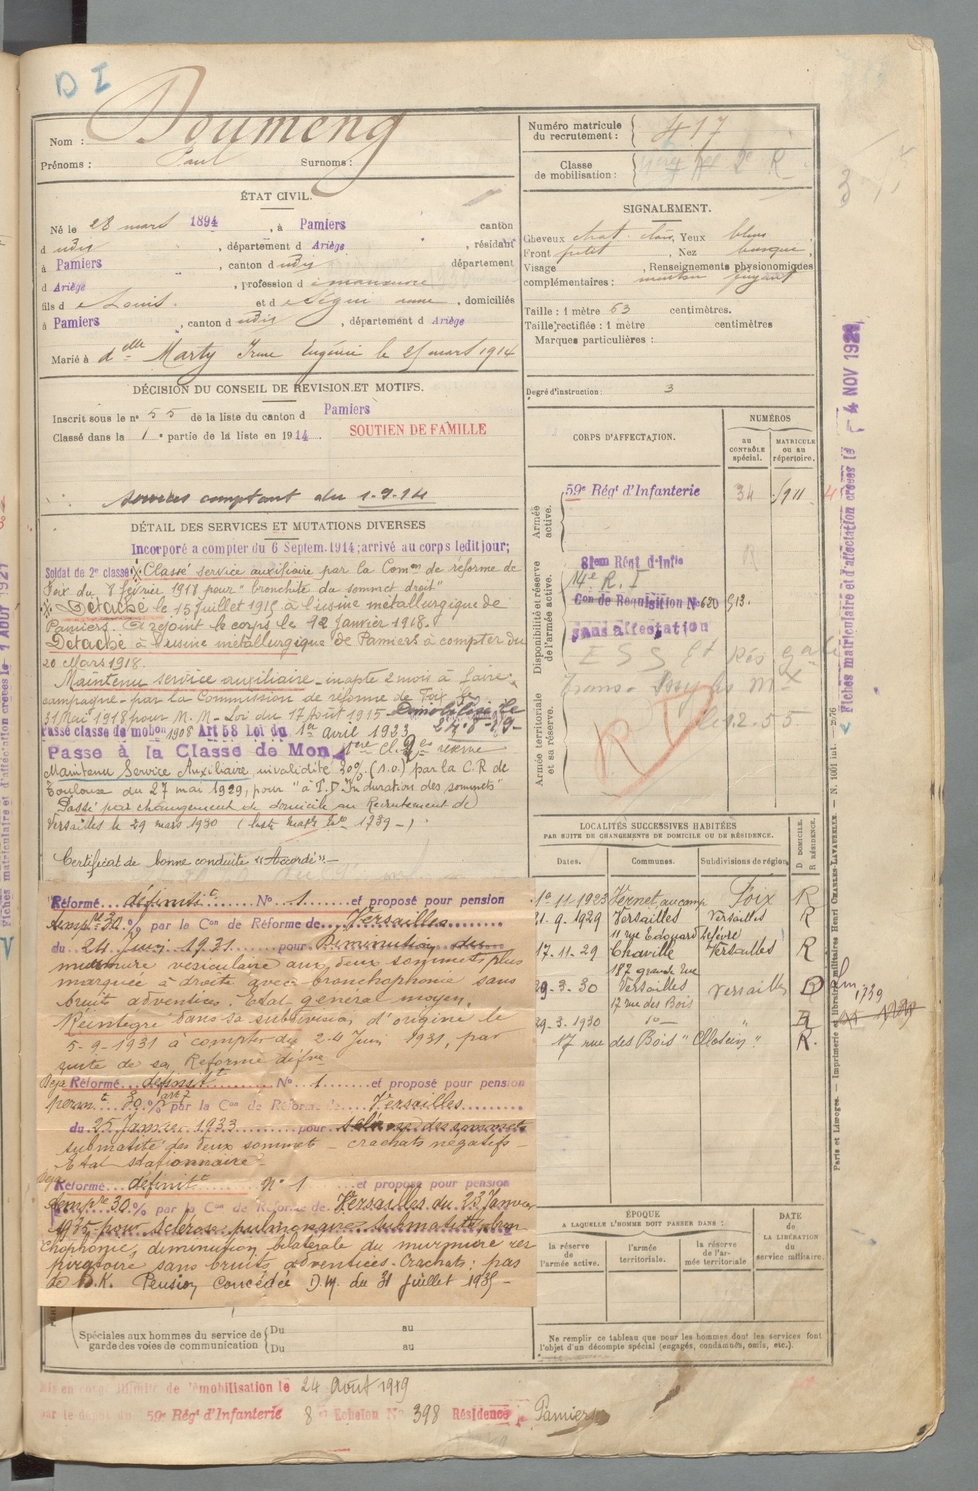 D I
Nom : Doumeng
Prénoms : Paul Surnoms :
Numéro matricule du recrutement : 417
Classe de mobilisation :
ÉTAT CIVIL.
Né le 28 mars 1894, à Pamiers canton
d udis, département d Ariège, résidant
à Pamiers, canton d udis département
d Ariège, profession d manœuvre
fils d e Louis. et d e Ségui anne, domiciliés
à Pamiers, canton d udis, département d Ariège
Marié à delle Marty Irma Eugénie le 25 mars 1914
SIGNALEMENT.
Cheveux chat. clair, Yeux bleus,
Front petit, Nez busqué,
Visage , Renseignements physionomiques
complémentaires : menton fuyant
Taille : 1 mètre 63 centimètres.
Taille rectifiée : 1 mètre centimètres
Marques particulières :
Degré d'instruction : 3
DÉCISION DU CONSEIL DE REVISION ET MOTIFS.
Inscrit sous le n° 55 de la liste du canton d Pamiers
Classé dans la 1e partie de la liste en 1914.
SOUTIEN DE FAMILLE
Services comptant du 1-9-14
DÉTAIL DES SERVICES ET MUTATIONS DIVERSES
Incorporé a compter du 6 Septem. 1914; arrivé au corps ledit jour;
Soldat de 2e classe Classé service auxiliaire par la Comon de réforme de
Foix du 8 février 1918 pour "bronchite du sommet droit"
Détaché le 15 juillet 1915 à l'usine métallurgique de
Pamiers. Rejoint le corps le 12 janvier 1918.
Détaché à l'usine métallurgique de Pamiers à compter du
20 Mars 1918.
Maintenu service auxiliaire - inapte 2 mois à faire
campagne - par la Commission de réforme de Foix le
31 Mai 1918 pour M. M - Loi du 17 Août 1915 - Démobilisé le 24-8-19-
Passé classe de mobon 1908 Art 58 Loi du 1er Avril 1933
Passé à la Classe de Mon
Maintenu Service Auxiliaire, invalidité 30% (1.0.) par la C.R de
Toulouse du 27 mai 1929, pour "à T.D Induration des sommets"
Passé par changement de domicile au Recrutement de
Versailles le 29 mars 1930 (liste matle 1739 -).
Certificat de bonne conduite "Accordé" -
Réformé définitt N° 1 et proposé pour pension
temprre 30 % par la Con de Réforme de Versailles
du 24 Juin 1931 pour Diminution du
murmure vésiculaire aux deux sommets, plus
marquée à droite avec bronchophonie sans
bruits adventices. Etat général moyen.
Réintégré dans sa subdivision d'origine le
5-9-1931 à compter du 24 Juin 1931, par
suite de sa Réforme défve
Déjà Réformé définitt N° 1 et proposé pour pension
permt 30 % par la Con de Réforme de Versailles
du 25 Janvier 1933 pour sclérose des sommets
submatité des deux sommet - crachats négatifs -
Etat stationnaire -
Déjà Réformé définitt N° 1 et proposé pour pension
temprre 30 % par la Con de Réforme de Versailles du 23 Janvier
1935 pour sclérose pulmonaire - submatité, bron
chophonie, diminution bilatérale du murmure res
piratoire sans bruits adventices. Crachats : pas
de B.K. Pension concédée D.M. du 31 juillet 1935 -
Spéciales aux hommes du service de garde des voies de communication
Du au
Du au
CORPS D'AFFECTATION.
NUMÉROS
au CONTRÔLE spécial.
MATRICULE ou au répertoire.
Armée active.
59e Régt d'Infanterie 34
Disponibilité et réserve de l'armée active.
81em Régt d'Infie
14e R. I
Con de Requisition N° 620 913.
Sans affectation
Armée territoriale et sa réserve.
LOCALITÉS SUCCESSIVES HABITÉES
PAR SUITE DE CHANGEMENTS DE DOMICILE OU DE RÉSIDENCE.
Dates. Communes. Subdivisions de région
D DOMICILE. R RÉSIDENCE.
1e 11-1923 Vernet au camp Foix R
21-9-1929 Versailles Versailles R
11 rue Edouard Lefèvre
17-11-29 Chaville Versailles R
187 grande rue
29-3-30 Versailles Versailles D
17 rue des Bois
29-3-1930 R
17 rue des Bois R.
1739
ÉPOQUE
A LAQUELLE L'HOMME DOIT PASSER DANS :
la réserve de l'armée active.
l'armée territoriale.
la réserve de l'armée territoriale
DATE de LA LIBÉRATION du service militaire.
Ne remplir ce tableau que pour les hommes dont les services font
l'objet d'un décompte spécial (engagés, condamnés, omis, etc.).
Mis en congé illimité de démobilisation le 24 Août 1919
par le dépôt du 59e Régt d'Infanterie 8e Echelon N° 398 Résidence Pamiers
Fiches matriculaire et d'affectation créées le 4 NOV 1921
Paris et Limoges. — Imprimerie et librairie militaires Henri CHARLES-LAVAUZELLE. — N. 1001 int.
Fiches matriculaires et d'affection créées le 1 AOUT 1921